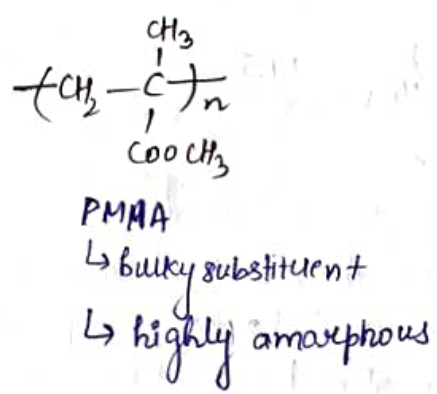 CH₃
-(CH₂-C-)n
COOCH₃
PMMA
↳ bulky substituent
↳ highly amorphous